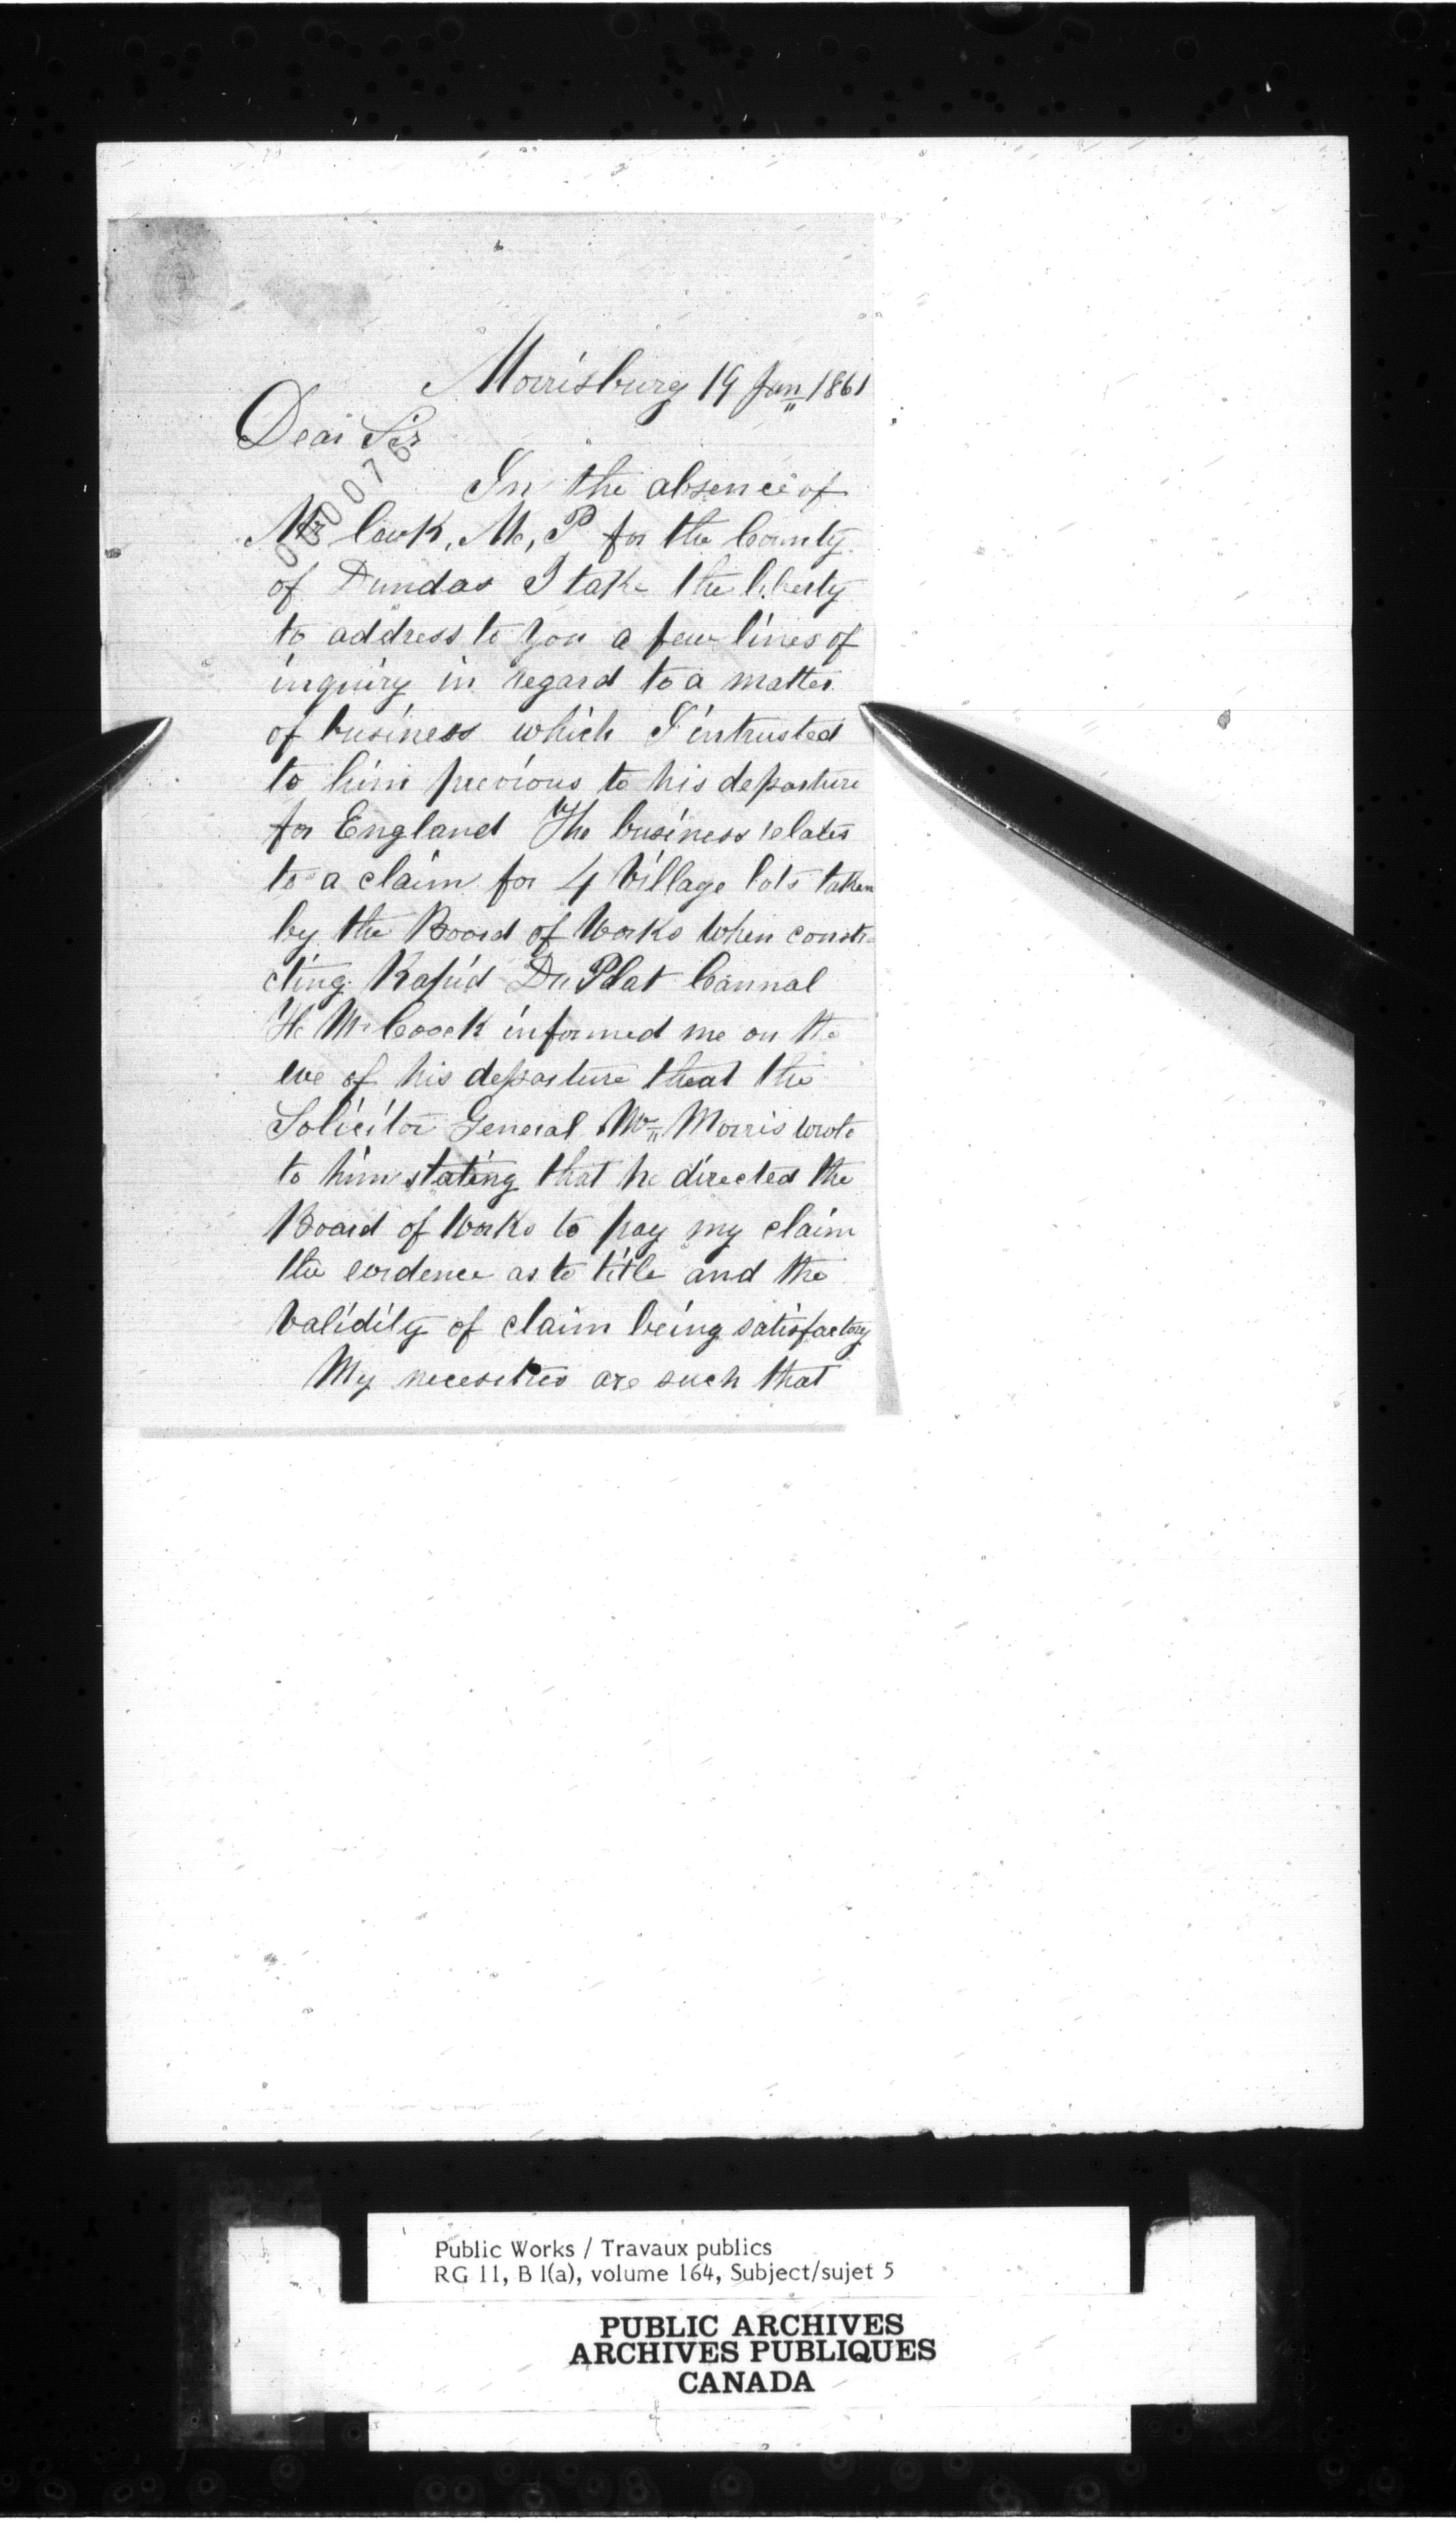 Morrisburg 19 Jan 1861
Dear Sir
000076
In the absence of
Mr Cook, M, P for the County
of Dundas I take the liberty
to address to you a few lines of
inquiry in regard to a matter
of business which I intrusted
to him previous to his departure
for England The business relates
to a claim for 4 Village lots taken
by the Board of Works when constr
cting Rapid Du Plat Cannal
He Mr Coock informed me on the
eve of his departure that the
Solicitor General Mr Morris wrote
to him stating that he directed the
Board of Works to pay my claim
the evidence as to title and the
validity of claim being satisfactory
My necesities are such that
Public Works / Travaux publics
RG 11, B 1(a), volume 164, Subject/sujet 5
PUBLIC ARCHIVES
ARCHIVES PUBLIQUES
CANADA